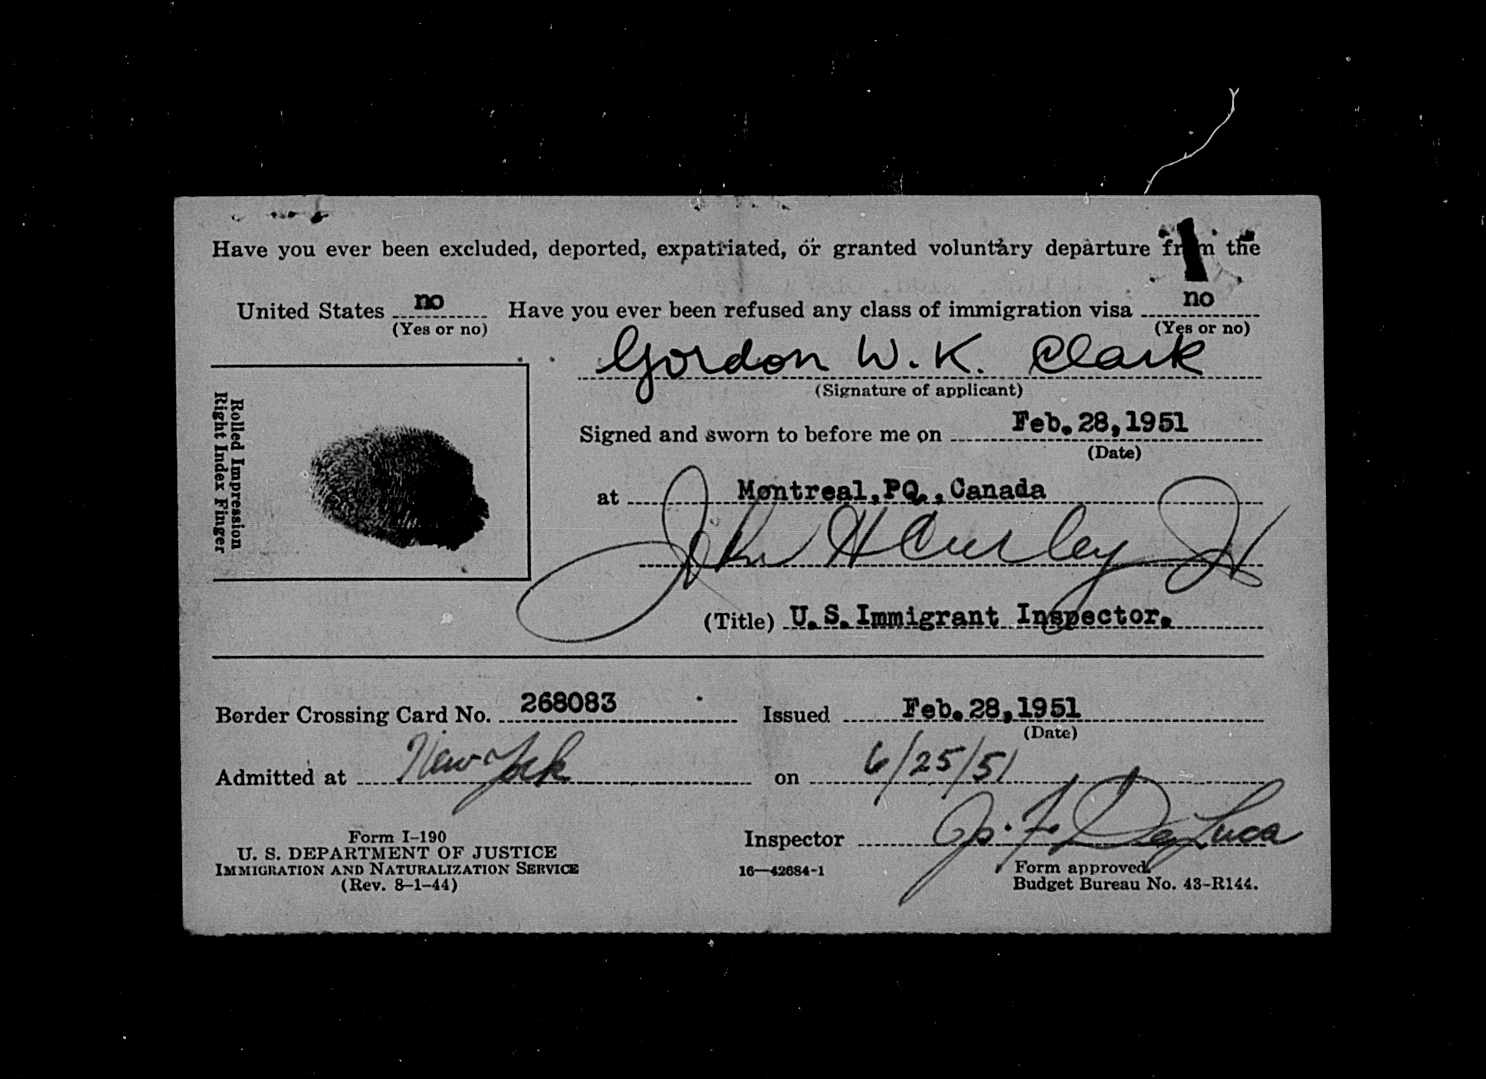 Have you ever been excluded, deported, expatriated, or granted voluntary departure from the
United States no Have you ever been refused any class of immigration visa no
(Yes or no) (Yes or no)
Gordon W. K. Clark
(Signature of applicant)
Rolled Impression
Right Index Finger
Signed and sworn to before me on Feb. 28, 1951
(Date)
at Montreal, PQ., Canada
John H Curley Jr
(Title) U. S. Immigrant Inspector.
Border Crossing Card No. 268083 Issued Feb. 28, 1951
(Date)
Admitted at New York on 6/25/51
Inspector F. De Luca
Form I-190
U. S. DEPARTMENT OF JUSTICE
IMMIGRATION AND NATURALIZATION SERVICE
(Rev. 8-1-44)
16—42684-1
Form approved
Budget Bureau No. 43-R144.